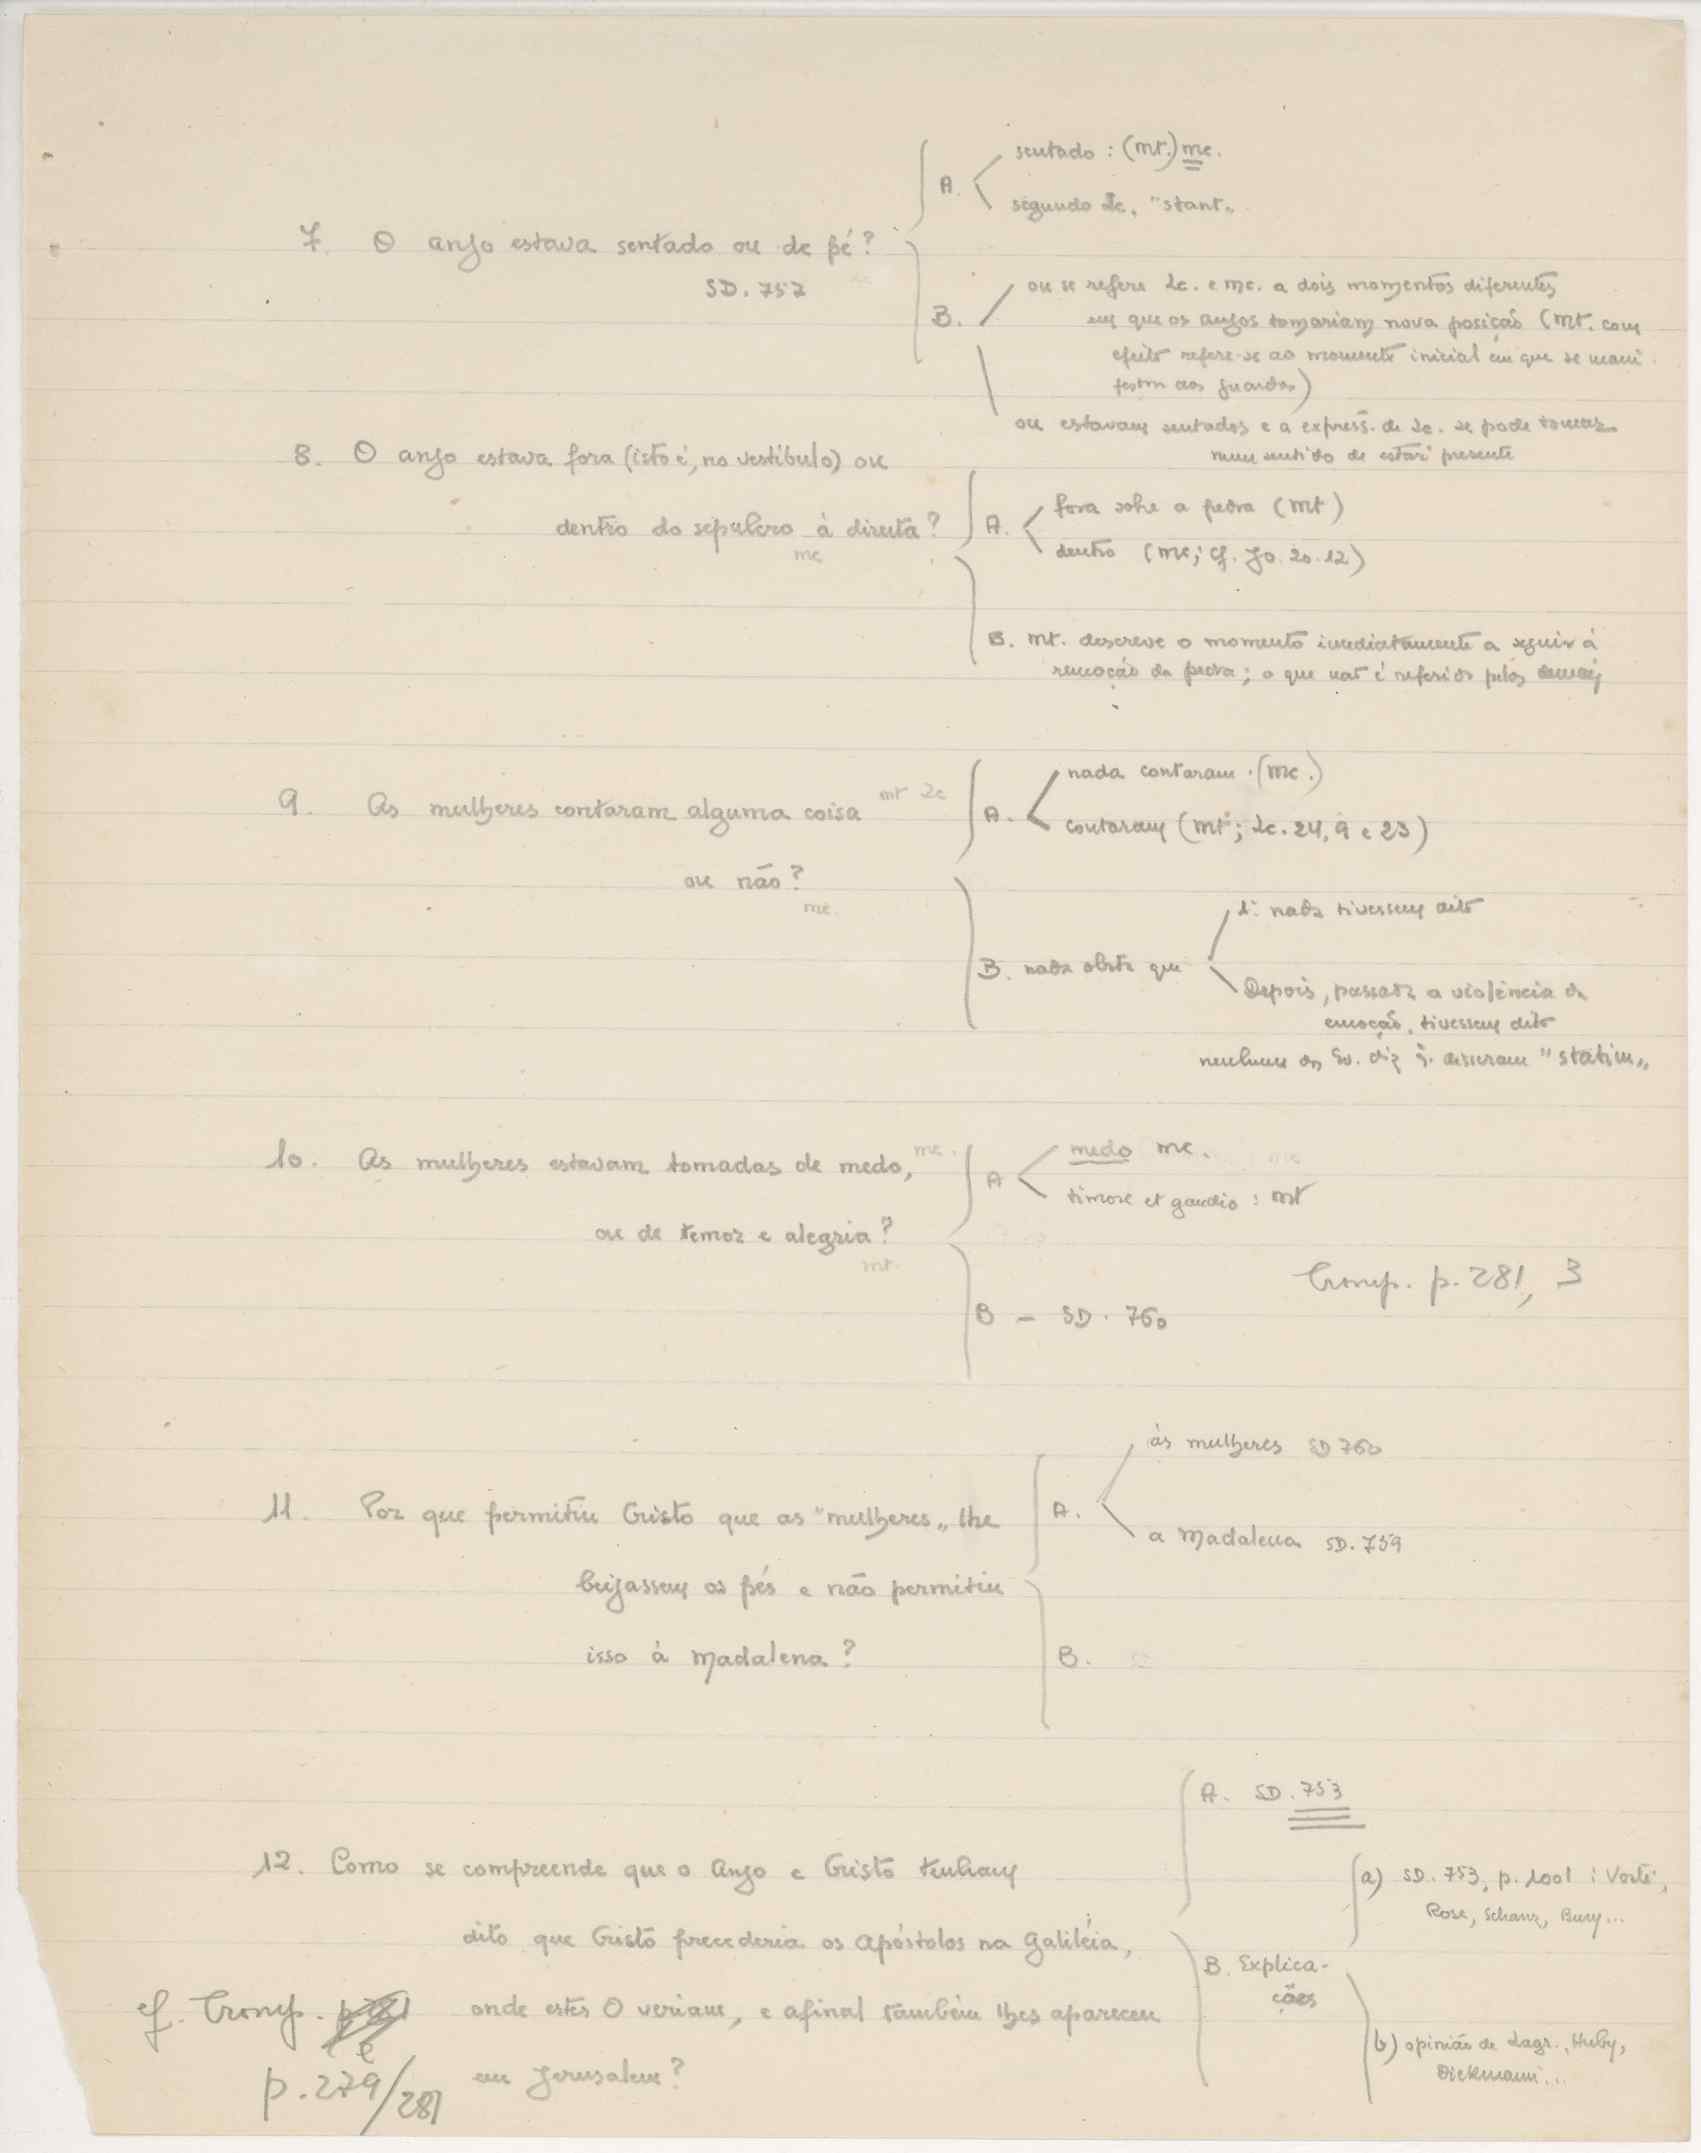 7. O anjo estava sentado ou de pé?
SD. 757
A.
sentado : (Mt.) Mc.
segundo Lc, "stant„
B.
ou se refere Lc. e Mc. a dois momentos diferentes
em que os anjos tomariam nova posição (Mt. com
efeito refere-se ao momento inicial em que se mani
festou aos guardas)
ou estavam sentados e a express. de Lc. se pode tomar
num sentido de estar presente
8. O anjo estava fora (isto é, no vestíbulo) ou
dentro do sepulcro à direita?
Mc
A.
fora sobre a pedra (Mt)
dentro (Mc; cf. Jo. 20.12)
B. Mt. descreve o momento imediatamente a seguir à
remoção da pedra; o que não é referido pelos demais
9. As mulheres contaram alguma coisa Mt Lc
ou não?
Mc.
A.
nada contaram (Mc.)
contaram (Mt; Lc. 24, 9 e 23)
B. nada obsta que
1º nada tivessem dito
Depois, passada a violência da
emoção, tivessem dito
nenhum dos Ev. diz q. disseram "statim„
10. As mulheres estavam tomadas de medo, Mc.
ou de temor e alegria?
Mt.
A
medo Mc.
timore et gaudio : Mt
B – SD. 760
Cromp. p. 281, 3
11. Por que permitiu Cristo que as "mulheres„ lhe
beijassem os pés e não permitiu
isso à Madalena?
A.
às mulheres SD 760
a Madalena SD. 759
B.
12. Como se compreende que o Anjo e Cristo tenham
dito que Cristo precederia os Apóstolos na Galiléia,
onde estes O veriam, e afinal também lhes apareceu
em Jerusalem?
cf. Cromp.
p. 279/281
A. SD. 753
B. Explica-
ções
a) SD. 753, p. 1001 : Vosté,
Rose, Schanz, Buzy...
b) opinião de Lagr., Huby,
Dieckmann...